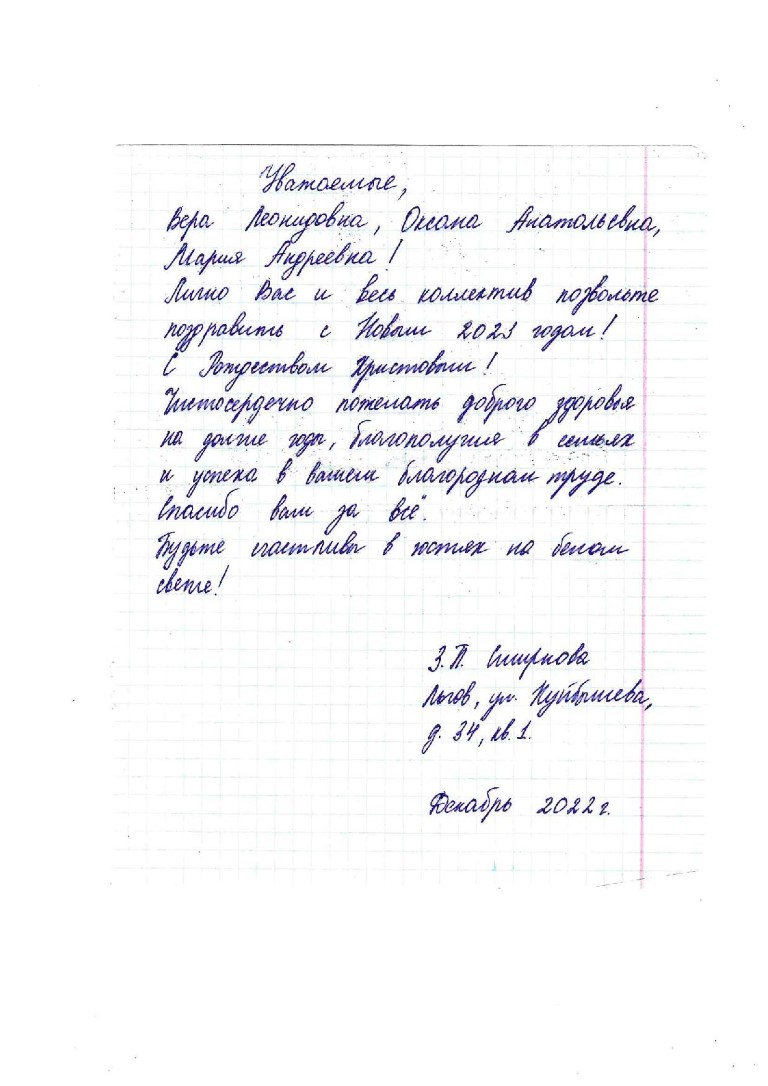 Уважаемые,
Вера Леонидовна, Оксана Анатольевна,
Мария Андреевна!
Лично Вас и весь коллектив позвольте
поздравить с Новым 2023 годом!
С Рождеством Христовым!
Чистосердечно пожелать доброго здоровья
на долгие годы, благополучия в семьях
и успеха в вашем благородном труде.
Спасибо вам за всё.
Будьте счастливы в гостях на белом
свете!
З.П. Смирнова
Льгов, ул. Куйбышева,
д. 34, кв. 1.
Декабрь 2022 г.